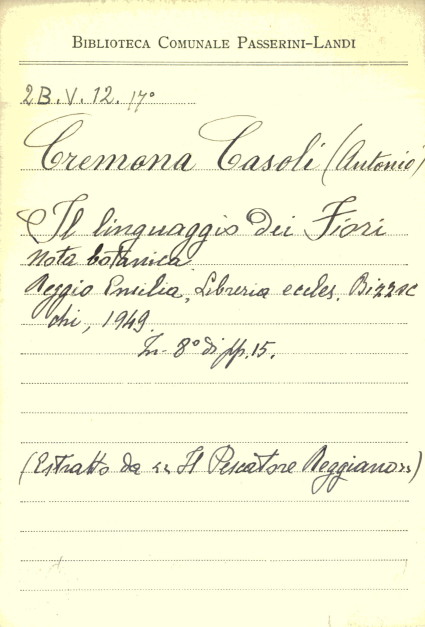 BIBLIOTECA COMUNALE PASSERINI-LANDI
2B.V.12. 17°
Cremona Casoli (Antonio)
Il linguaggio dei Fiori
Nota botanica
Reggio Emilia, Libreria eccles. Bizzoc
chi, 1949.
In-8° di pp. 15.
(Estratto da «Il Pescatore Reggiano»)